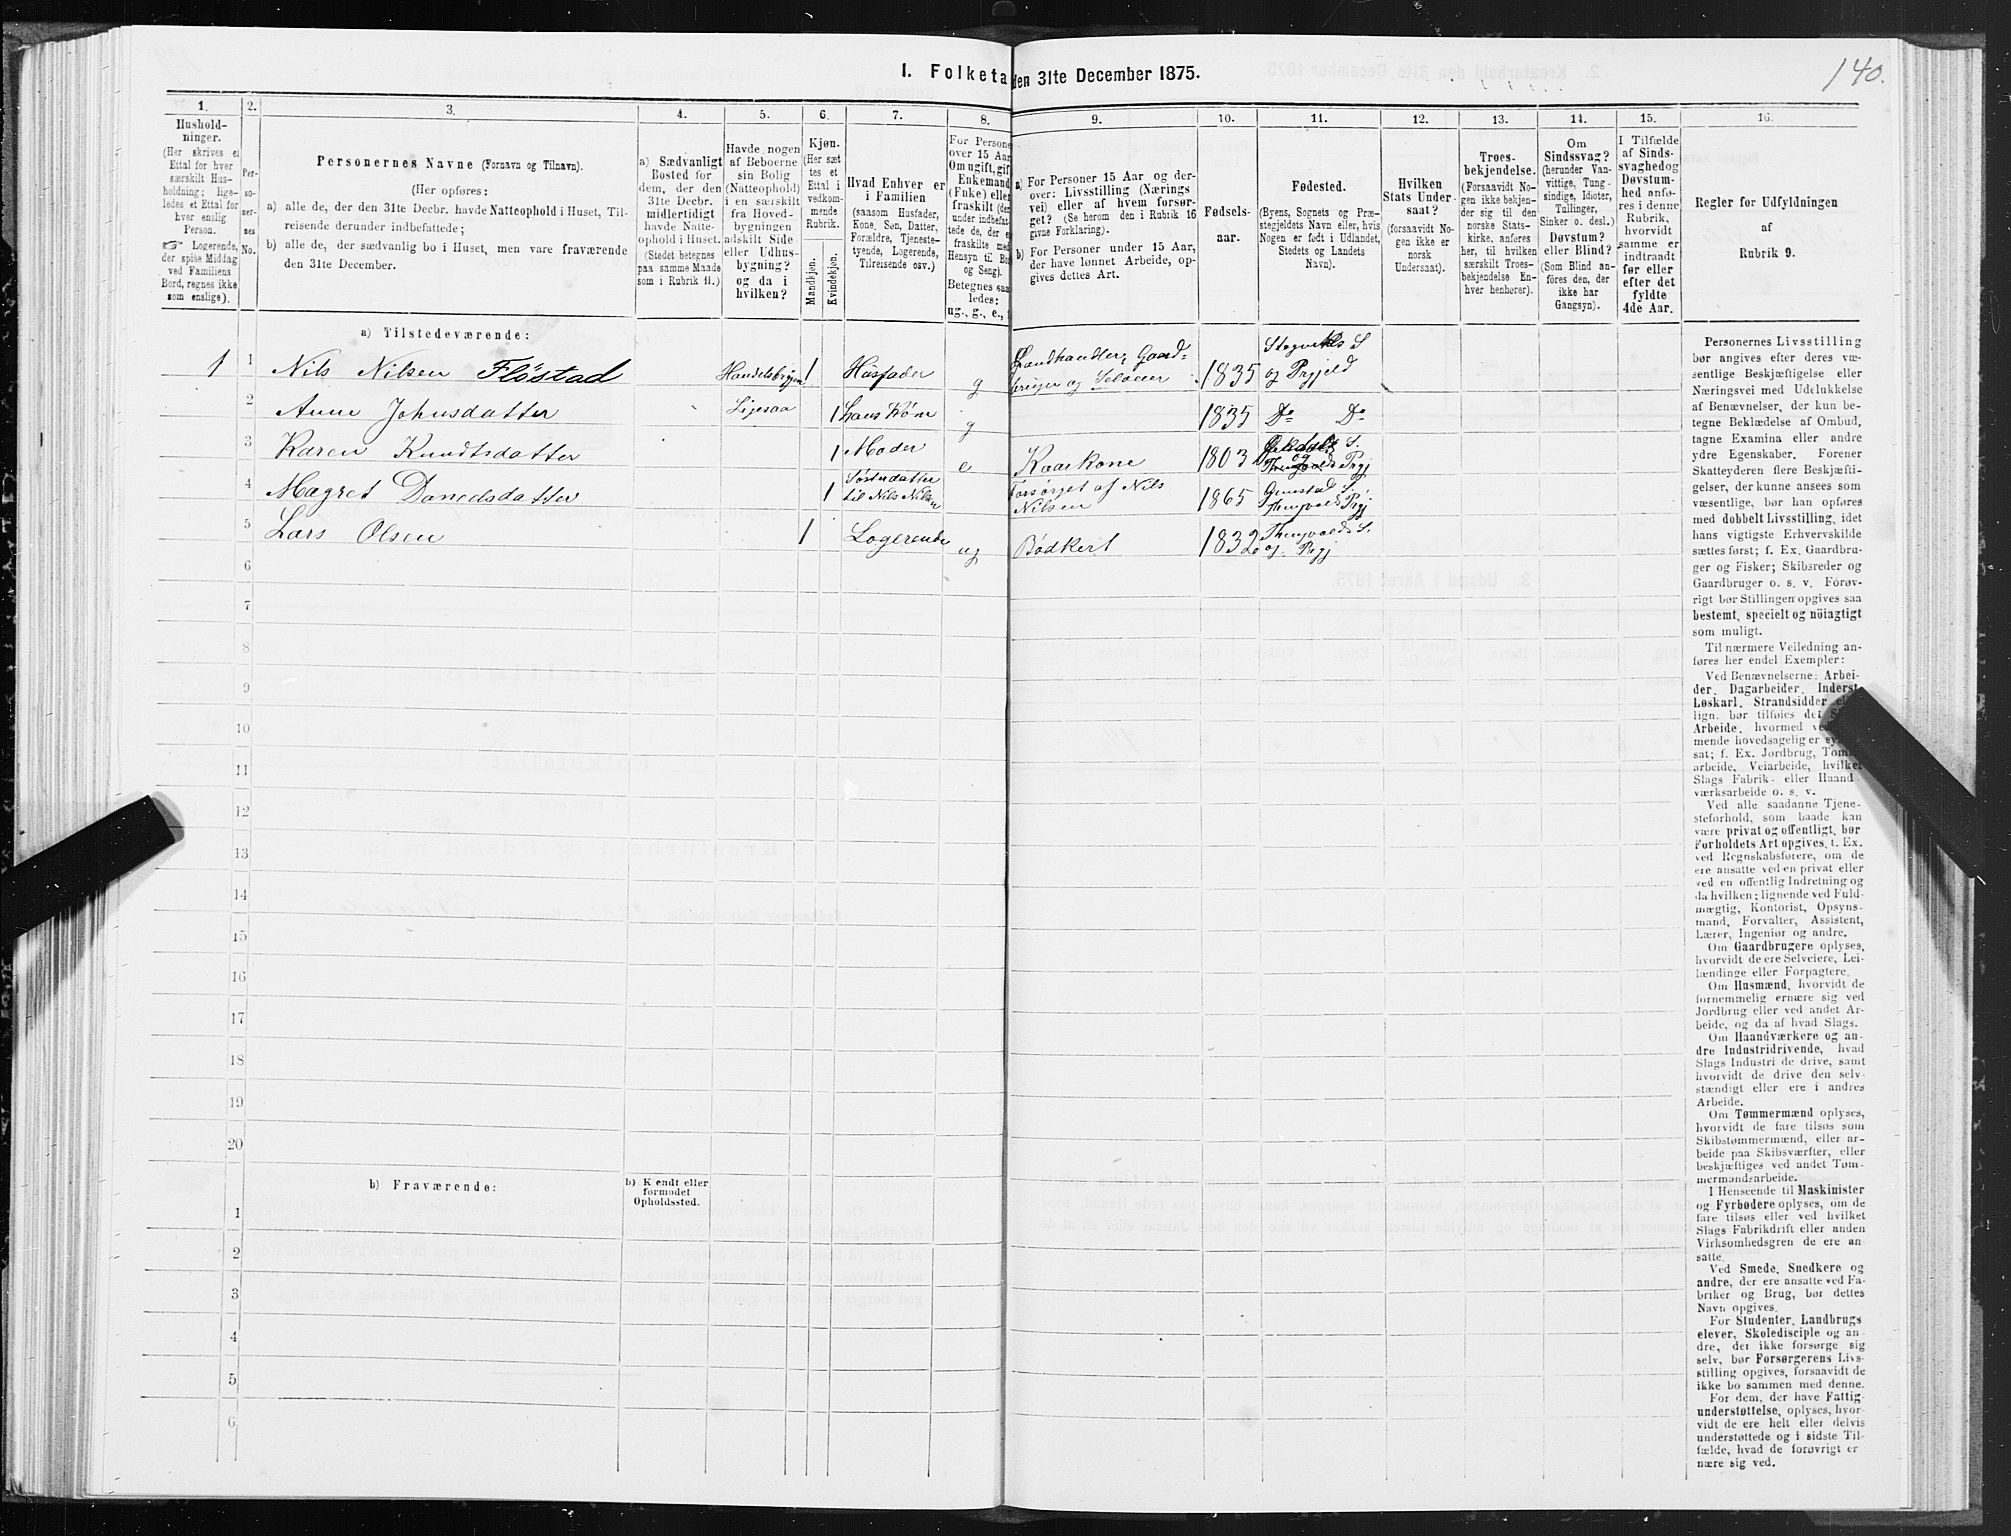 140.
I. Folketa
den 31te December 1875.
1.
2.
3.
4.
5.
6.
7.
8.
9.
10.
11.
12.
13.
14.
15.
16.
Hushold-
ninger.
(Her skrives et
Ettal for hver
særskilt Hus-
holdning; lige-
ledes et Ettal for
hver enslig
Person.
☞ Logerende,
der spise Middag
ved Familiens
Bord, regnes ikke
som enslige).
Per-
so-
ner-
nes
No.
Personernes Navne (Fornavn og Tilnavn).
(Her opføres:
a) alle de, der den 31te Decbr. havde Natteophold i Huset, Til-
reisende derunder indbefattede;
b) alle de, der sædvanlig bo i Huset, men vare fraværende
den 31te December.
a) Sædvanligt
Bosted for
dem, der den
31te Decbr.
midlertidigt
havde Natte-
ophold i Huset.
(Stedet betegnes
paa samme Maade
som i Rubrik 11.)
Havde nogen
af Beboerne
sin Bolig
(Natteophold)
i en særskilt
fra Hoved-
bygningen
adskilt Side-
eller Udhus-
bygning?
og da i
hvilken?
Kjøn.
(Her sæt
tes et
Ettal i
vedkom-
mende
Rubrik.
Mandkjøn.
Kvindekjøn.
Hvad Enhver er
i Familien
(saasom Husfader,
Kone, Søn, Datter,
Forældre, Tjeneste-
tyende, Logerende,
Tilreisende osv.)
For Persone
over 15 Aar
Om ugift, gif
Enkemand
(Enke) eller
fraskilt (der
under indbefat
tede de, der e
fraskilte med
Hensyn til Bo
og Seng).
Betegnes saa
ledes:
ug., g., e.,
a) For Personer 15 Aar og der-
over: Livsstilling (Nærings
vei) eller af hvem forsør-
get? (Se herom den i Rubrik 16
givne Forklaring).
b) For Personer under 15 Aar,
der have lønnet Arbeide, op-
gives dettes Art.
Fødsels-
aar.
Fødested.
(Byens, Sognets og Præ-
stegjeldets Navn eller, hvis
Nogen er født i Udlandet,
Stedets og Landets
Navn).
Hvilken
Stats Under
saat?
(forsaavidt No-
gen ikke er
norsk
Undersaat).
Troes-
bekjendelse.
(Forsaavidt No-
gen ikke bekjen-
der sig til den
norske Stats-
kirke, anføres
her, til hvilken
særskilt Troes-
bekjendelse En-
hver henhører).
Om
Sindssvag?
(herunder Van-
vittige, Tung-
sindige, Idioter,
Tullinger,
Sinker o. desl.)
Døvstum?
eller Blind?
(Som Blind an-
føres den, der
ikke har
Gangsyn).
I Tilfælde
af Sinds-
svaghed og
Døvstum-
hed anfø-
res i denne
Rubrik,
hvorvidt
samme er
indtraadt
før eller
efter det
fyldte
4de Aar.
Regler for Udfyldningen
af
Rubrik 9.
a) Tilstedeværende:
1 1 Nils Nilsen Flöstad Handelsbrygen 1 Husfader g Landhandler, Gaard-
bruger og Seloeier 1835 og Prgjeld
2 Anne Johnsdatter Ligesaa 1 hans Kone g 1835 Do Do
3 Karen Knudtsdatter 1 Moder e Kaarkone 1803
4 Magret Danedsdatter 1 Søsterdatter
til Nils Nilsen Forsørget af Nils
Nilsen 1865
5 Lars Olsen 1 Logerende ug Bødkert 1832
og Prgj
6
7
8
9
10
11
12
13
14
15
16
17
18
19
20
b) Fraværende:
b) Kendt eller
formodet
Opholdssted.
1
2
3
4
5
6
Personernes Livsstilling
bør angives efter deres væ-
sentlige Beskjæftigelse eller
Næringsvei med Udelukkelse
af Benævnelser, der kun be-
tegne Beklædelse af Ombud,
tagne Examina eller andre
ydre Egenskaber. Forener
Skatteyderen flere Beskjæfti-
gelser, der kunne ansees som
væsentlige, bør han opføres
med dobbelt Livsstilling, idet
hans vigtigste Erhvervskilde
sættes først; f. Ex. Gaardbru-
ger og Fisker; Skibsreder og
Gaardbruger o. s. v. Forøv-
rigt bør Stillingen opgives saa
bestemt, specielt og nøiagtigt
som muligt.
Til nærmere Veiledning an-
føres her endel Exempler:
Ved Benævnelserne: Arbei-
der, Dagarbeider, Inderst,
Løskarl, Strandsidder
lign. bør tilføies det
Arbeide, hvormed
mende hovedsagelig er
sat; f. Ex. Jordbrug, Tøm
arbeide, Veiarbeide, hvilket
Slags Fabrik- eller Haand-
værksarbeide o. s. v.
Ved alle saadanne Tjene-
steforhold, som baade kan
være privat og offentligt, bør
Forholdets Art opgives, f. Ex.
ved Regnskabsførere, om de
ere ansatte ved en privat eller
ved en offentlig Indretning og
da hvilken; lignende ved Fuld-
mægtig, Kontorist, Opsyns-
mand, Forvalter, Assistent,
Lærer, Ingeniør og andre.
Om Gaardbrugere oplyses,
hvorvidt de ere Selveiere, Lei-
lændinge eller Forpagtere.
Om Husmænd, hvorvidt de
fornemmelig ernære sig ved
Jordbrug eller ved andet Ar-
beide, og da af hvad Slags.
Om Haandværkere og an-
dre Industridrivende, hvad
Slags Industri de drive, samt
hvorvidt de drive den selv-
stændigt eller ere i andres
Arbeide.
Om Tømmermænd oplyses,
hvorvidt de fare tilsøs som
Skibstømmermænd, eller ar-
beide paa Skibsværfter, eller
beskjæftiges ved andet Tøm-
mermandsarbeide.
I Henseende til Maskinister
og Fyrbødere oplyses, om de
fare tilsøs eller ved hvilket
Slags Fabrikdrift eller anden
Virksomhedsgren de ere an-
satte.
Ved Smede, Snedkere og
andre, der ere ansatte ved Fa-
briker og Brug, bør dettes
Navn opgives.
For Studenter, Landbrugs
elever, Skoledisciple og an-
dre, der ikke forsørge sig
selv, bør Forsørgerens Livs-
stilling opgives, forsaavidt de
ikke bo sammen med denne.
For dem, der have Fattig-
understøttelse, oplyses, hvor-
vidt de ere helt eller delvis
understøttede og i sidste Til-
fælde, hvad de forøvrigt er
nære sig ved.